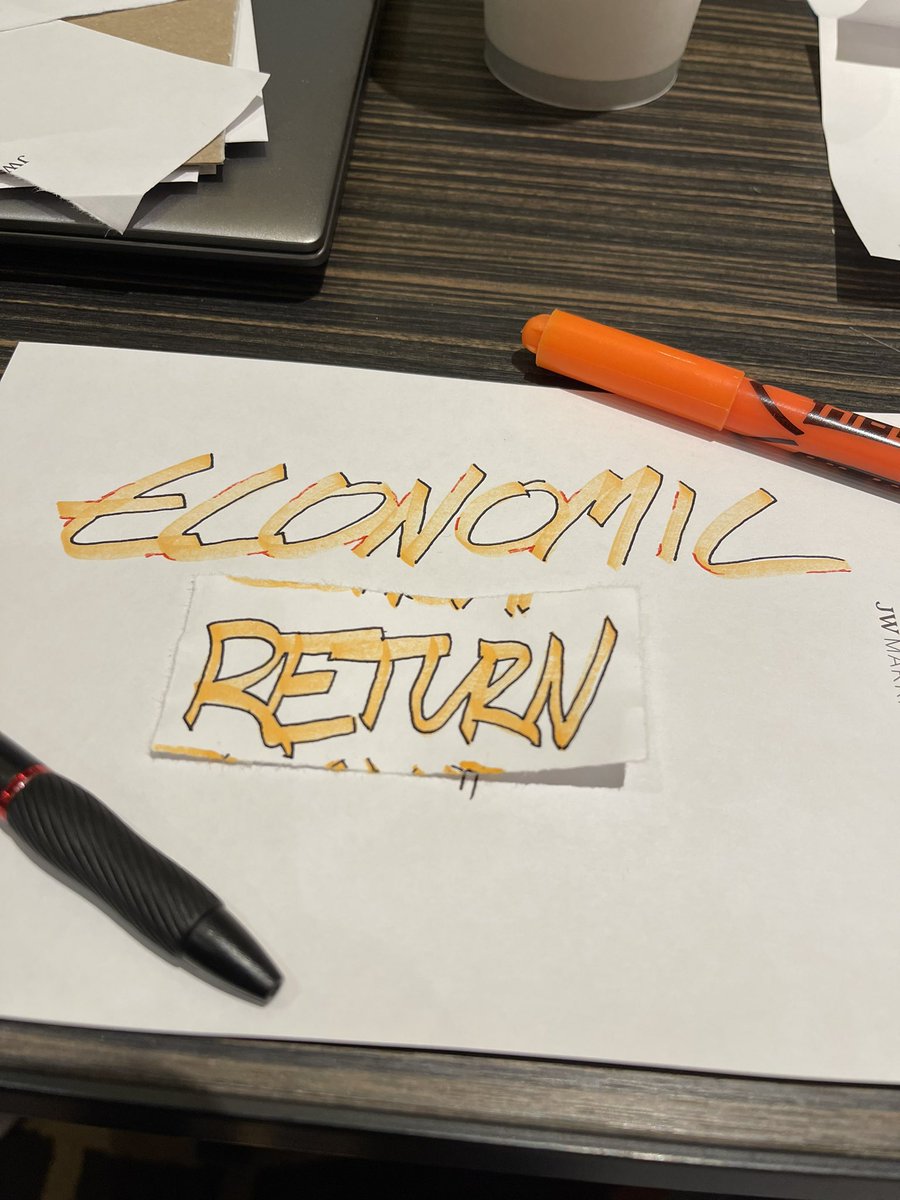 JW
ECONOMIC
RETURN
JW MARR